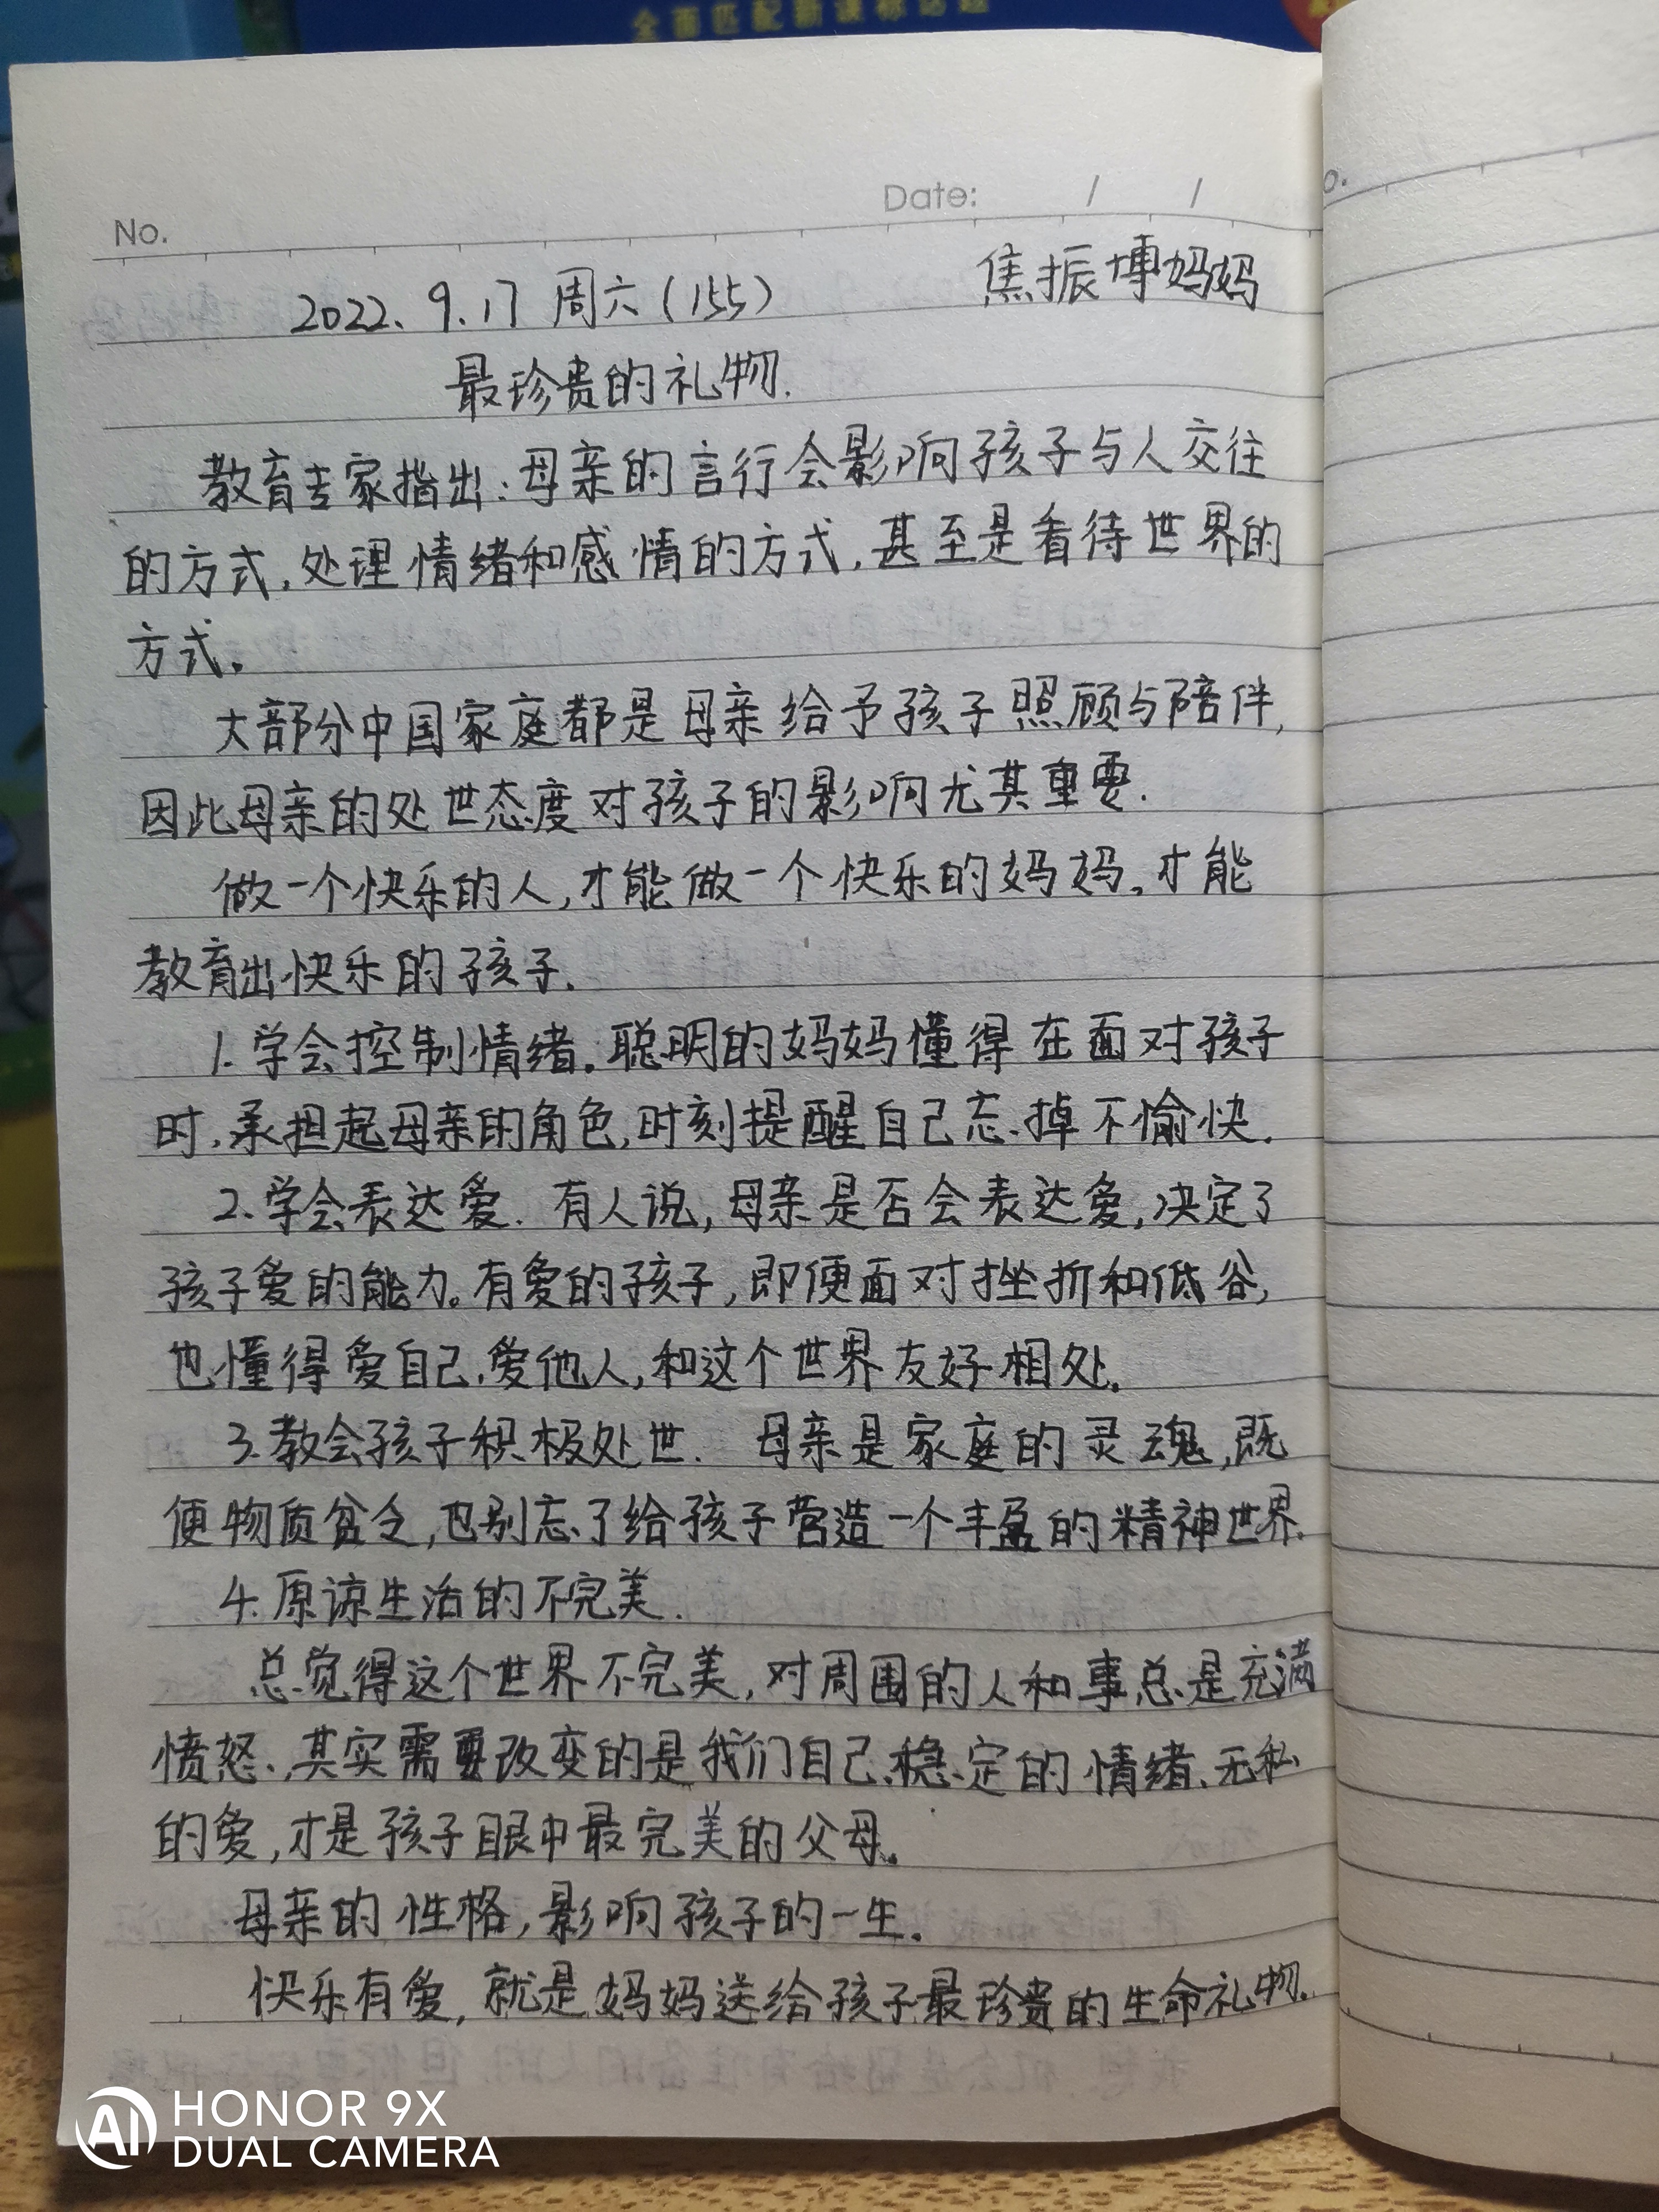 全面匹配新课标话题
No.
Date: / /
焦振博妈妈
2022.9.17 周六(155)
最珍贵的礼物.
教育专家指出:母亲的言行会影响孩子与人交往
的方式,处理情绪和感情的方式,甚至是看待世界的
方式。
大部分中国家庭都是母亲给予孩子照顾与陪伴,
因此母亲的处世态度对孩子的影响尤其重要.
做一个快乐的人,才能做一个快乐的妈妈。才能
教育出快乐的孩子.
1.学会控制情绪。聪明的妈妈懂得在面对孩子
时,承担起母亲的角色,时刻提醒自己忘掉不愉快.
2.学会表达爱. 有人说,母亲是否会表达爱,决定了
孩子爱的能力。有爱的孩子,即便面对挫折和低谷,
也懂得爱自己.爱他人,和这个世界友好相处。
3.教会孩子积极处世. 母亲是家庭的灵魂,既
便物质贫乏,也别忘了给孩子营造一个丰盈的精神世界.
4.原谅生活的不完美.
总觉得这个世界不完美,对周围的人和事总是充满
愤怒.,其实需要改变的是我们自己.稳定的情绪、无私
的爱,才是孩子眼中最完美的父母。
母亲的性格,影响孩子的一生.
快乐有爱,就是妈妈送给孩子最珍贵的生命礼物.
HONOR 9X
DUAL CAMERA